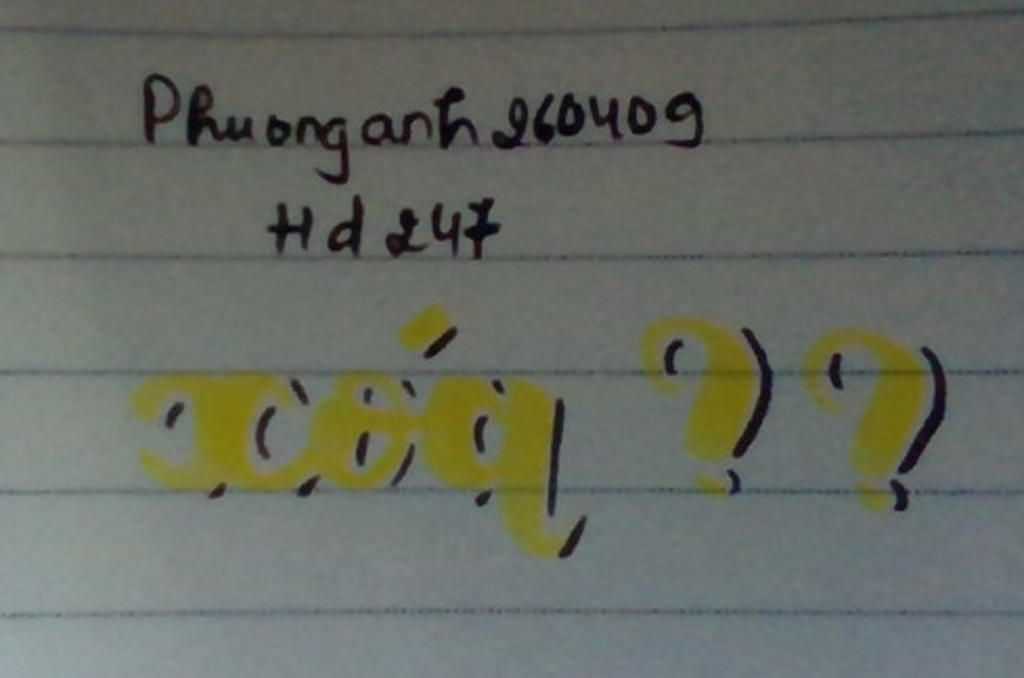 Phuonganh260409
Hd 247
xóq ??